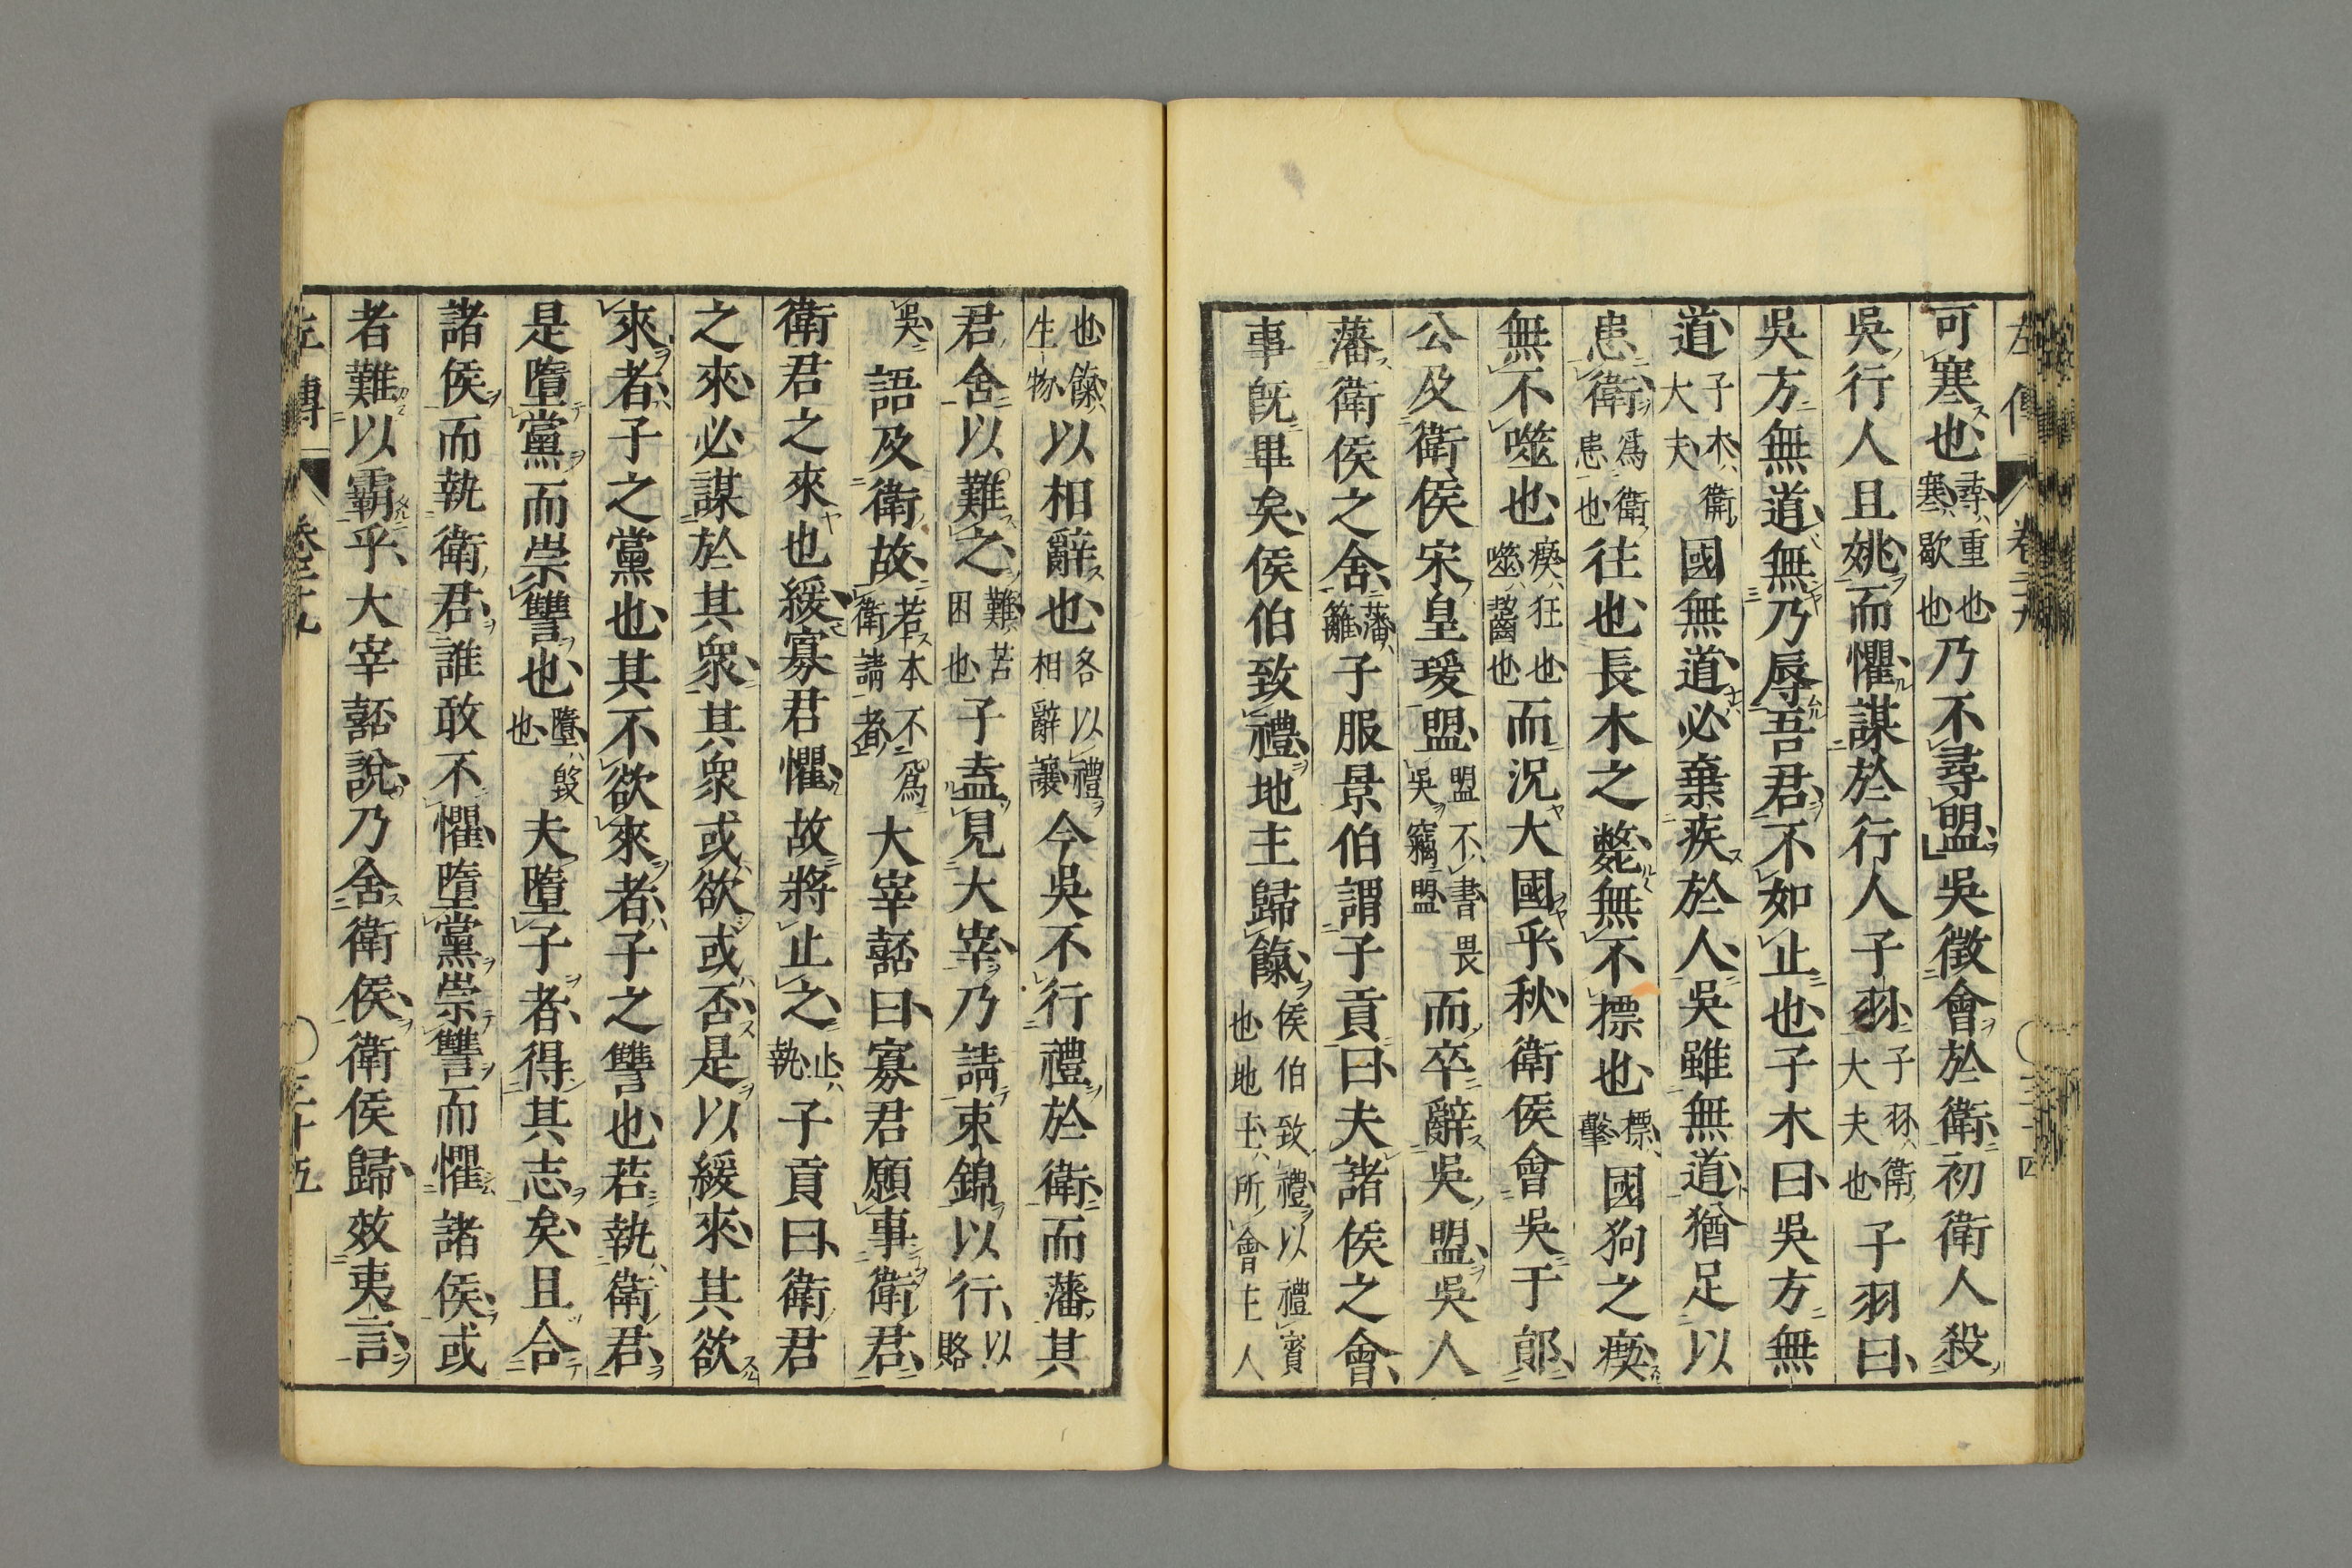 左傳 卷二十九 三十四
可寒也尋重也寒歇也乃不尋盟吳徵會於衛初衛人殺
吳行人且姚而懼謀於行人子羽子羽衛大夫也子羽曰
吳方無道無乃辱吾君不如止也子木曰吳方無
道子木衛大夫國無道必棄疾於人吳雖無道猶足以
患衛爲衛患也往也長木之斃無不摽也摽擊國狗之瘈
無不噬也瘈狂也噬齧也而況大國乎秋衛侯會吳于鄖
公及衛侯宋皇瑗盟盟不書畏吳竊盟而卒辭吳盟吳人
藩衛侯之舍藩籬子服景伯謂子貢曰夫諸侯之會
事既畢矣侯伯致禮地主歸餼侯伯致禮以禮賓也地主所會主人
也餼生物以相辭也各以禮相辭讓今吳不行禮於衛而藩其
君舍以難之難苦困也子盍見大宰乃請束錦以行以賂
吳語及衛故若本不爲衛請者大宰嚭曰寡君願事衛君
衛君之來也緩寡君懼故將止之止執子貢曰衛君
之來必謀於其衆其衆或欲或否是以緩來其欲
來者子之黨也其不欲來者子之讐也若執衛君
是墮黨而崇讐也墮毀也夫墮子者得其志矣且合
諸侯而執衛君誰敢不懼墮黨崇讐而懼諸侯或
者難以霸乎大宰嚭說乃舍衛侯衛侯歸效夷言
左傳 卷二十九 三十五